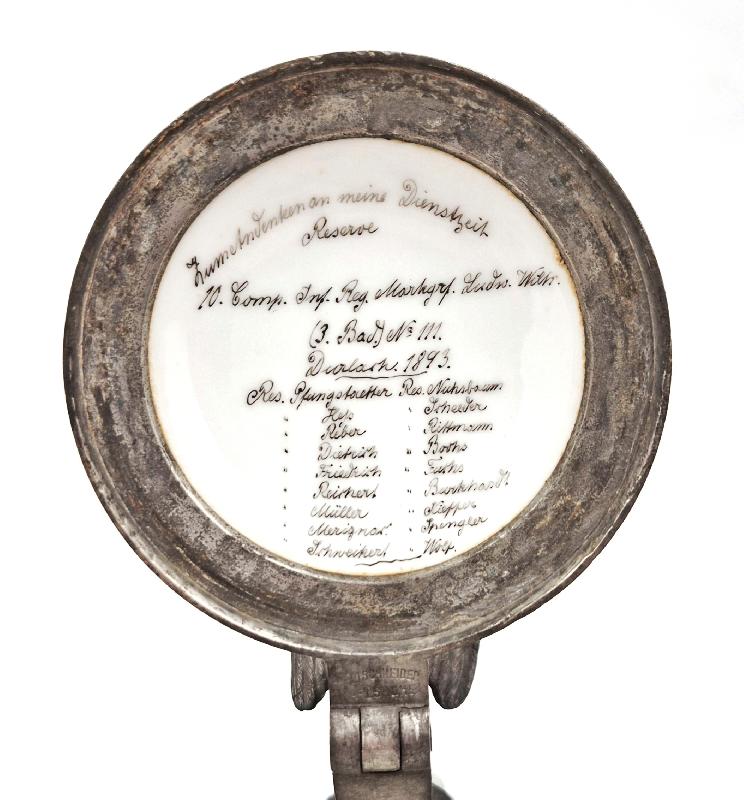 Zum Andenken an meine Dienstzeit
Reserve
10. Comp. Inf. Reg. Markgrf. Ludw. Wilh.
(3. Bad.) No 111.
Durlach. 1893.
Res. Pfungstaetter Res. Nussbaum
" Hess " Scheeder
" Reber " Rittmann
" Dietrich " Booths
" Friedrich " Fuchs
" Reichert " Burkhardt
" Müller " Kieffer
" " Spengler
" Schweikert " Wolf.
SCHNEIDER